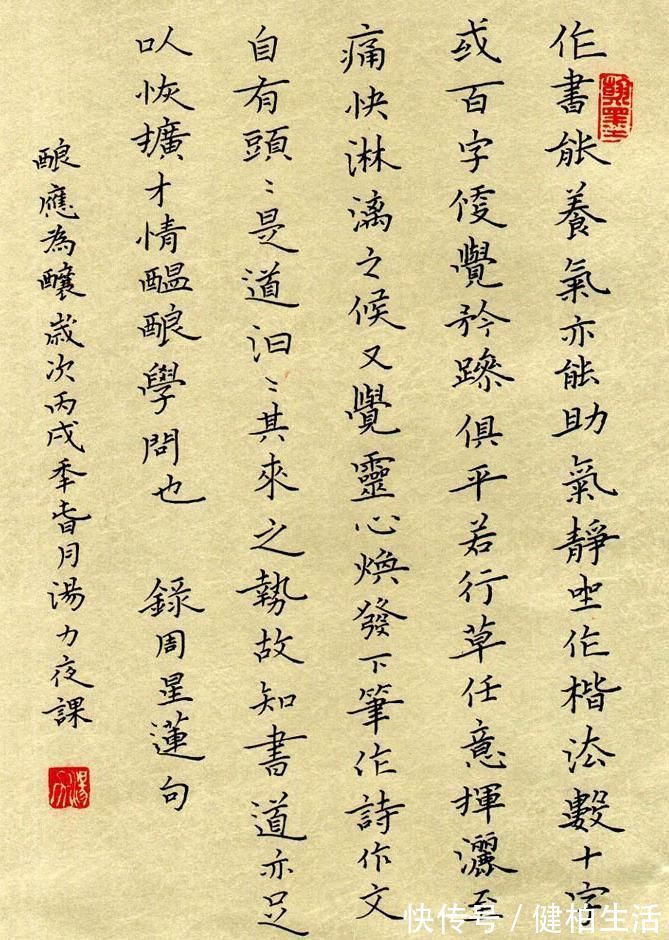 作書能養氣亦能助氣靜坐作楷法數十字
或百字便覺矜躁俱平若行草任意揮灑至
痛快淋漓之候又覺靈心煥發下筆作詩作文
自有頭〻是道汩〻其來之勢故知書道亦足
以恢擴才情醞酿學問也 錄周星蓮句
酿應為釀歲次丙戌年春月湯力夜課
翰墨
快传号/健柏生活